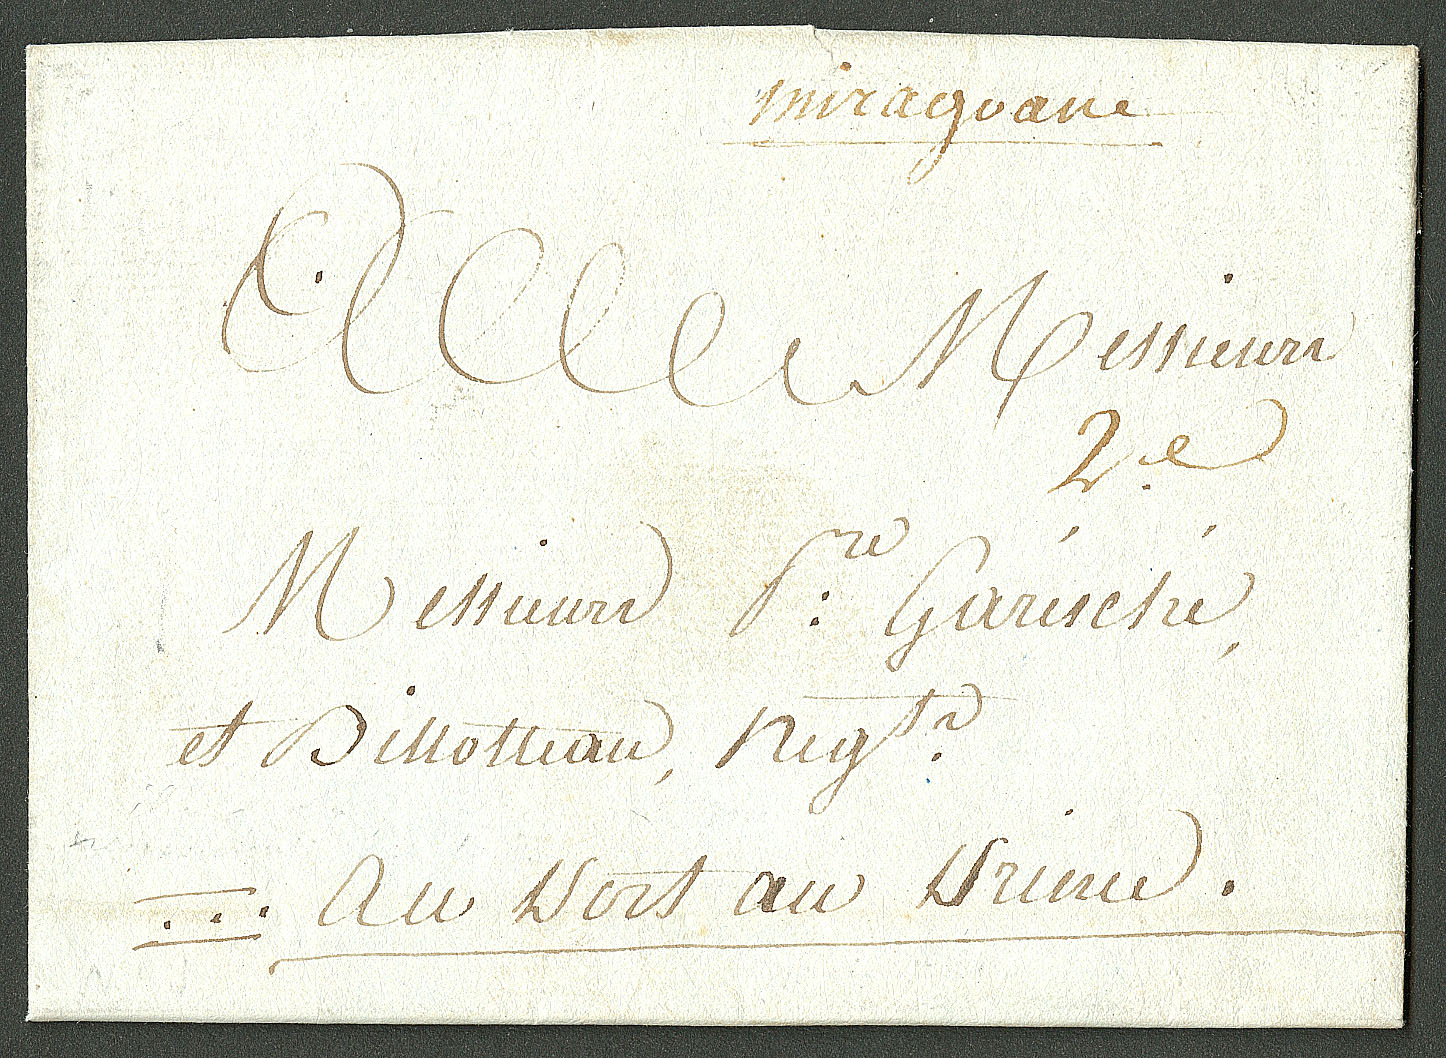 miragoane
A Messieurs
2.e
Messieurs P.re Garesché,
et Billotteau, Neg.ts
Au Port au Prince.